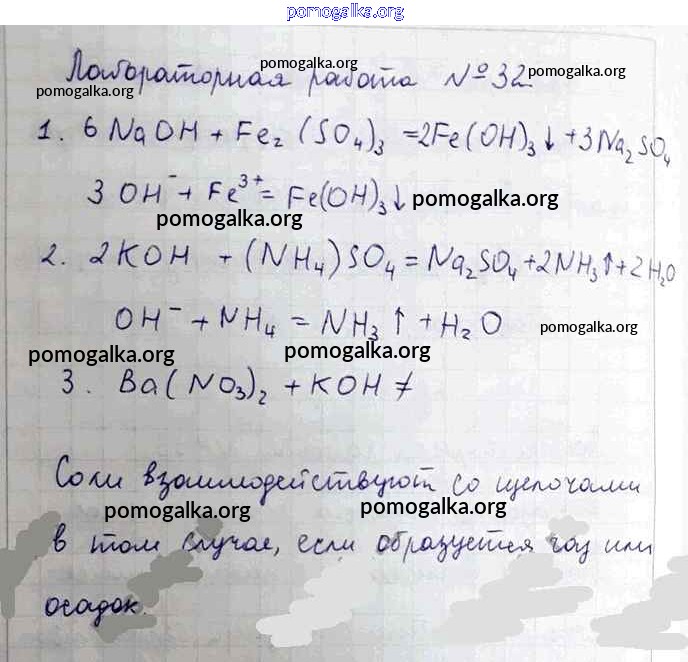 pomogalka.org
Лабораторная работа № 32
pomogalka.org
pomogalka.org
pomogalka.org
1. 6 NaOH + Fe₂(SO₄)₃ = 2Fe(OH)₃↓ + 3Na₂SO₄
3 OH⁻ + Fe³⁺ = Fe(OH)₃↓
pomogalka.org
pomogalka.org
2. 2KOH + (NH₄)SO₄ = Na₂SO₄ + 2NH₃↑ + 2H₂O
OH⁻ + NH₄ = NH₃↑ + H₂O
pomogalka.org
pomogalka.org
pomogalka.org
3. Ba(NO₃)₂ + KOH ≠
Соли взаимодействуют со щелочами
pomogalka.org
pomogalka.org
в том случае, если образуется газ или
осадок.